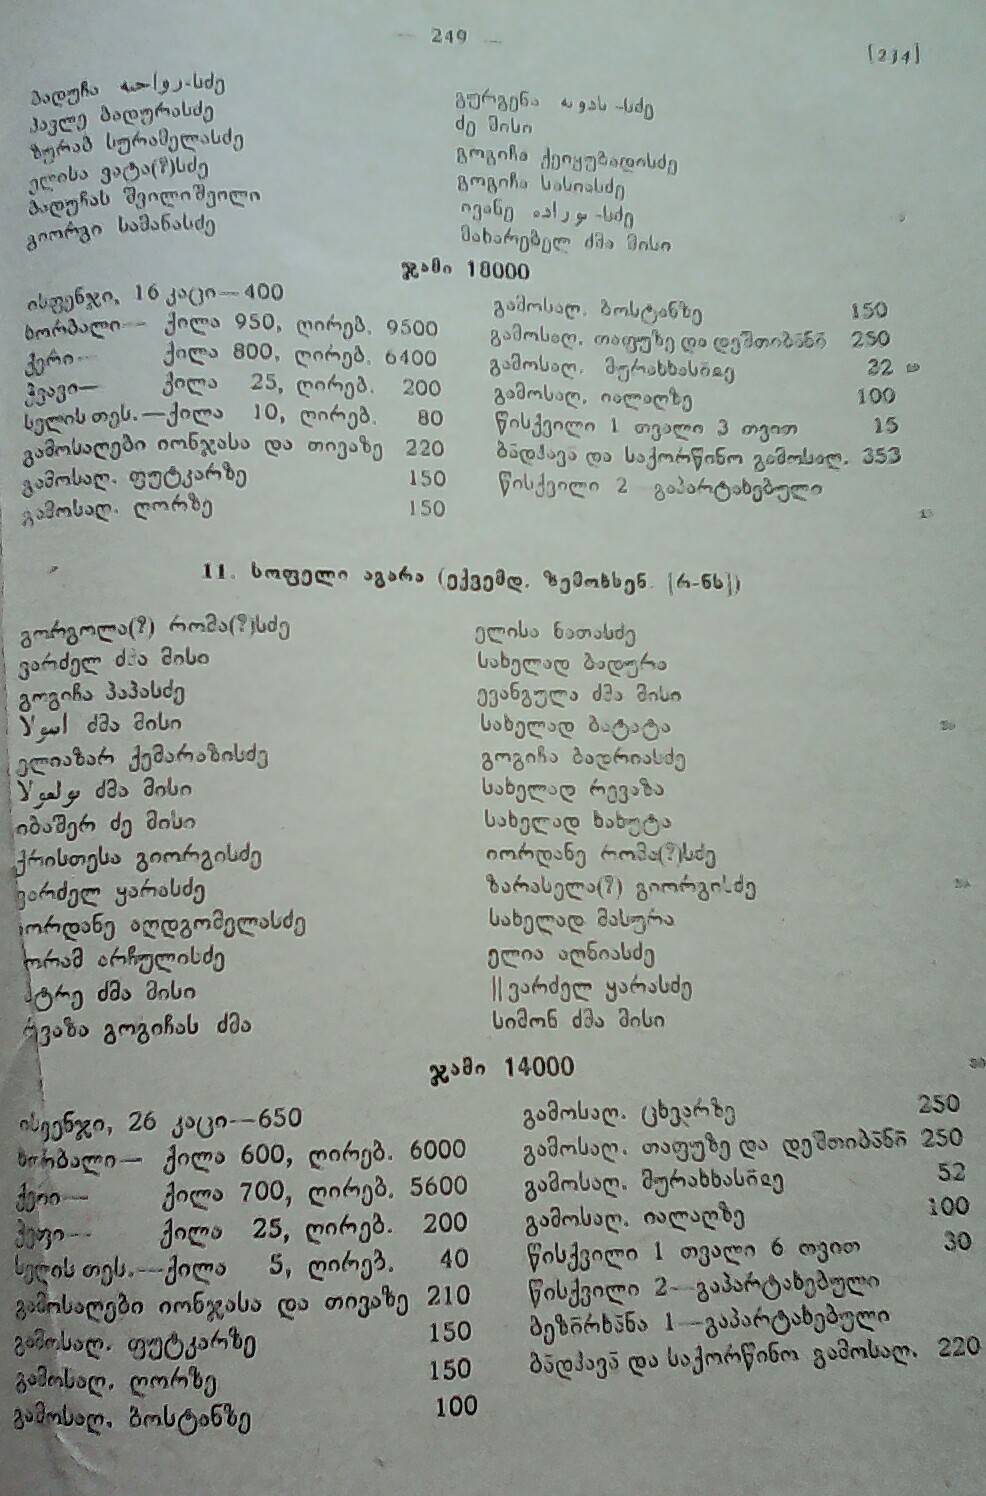 — 249 —
[234]
ბადუჩა -სძე
პავლე ბადურასძე
ზურაბ სურამელასძე
ელისა ვატა(?)სძე
ბადუჩას შვილიშვილი
გიორგი სამანასძე
გურგენა -სძე
ძე მისი
გოგიჩა ქეიყუბადისძე
გოგიჩა სასიასძე
ივანე -სძე
მახარებელ ძმა მისი
ჯამი 18000
ისფენჯი, 16 კაცი—400
ხორბალი— ქილა 950, ღირებ. 9500
ქერი— ქილა 800, ღირებ. 6400
ჭვავი— ქილა 25, ღირებ. 200
სელის თეს.—ქილა 10, ღირებ. 80
გამოსაღები იონჯასა და თივაზე 220
გამოსაღ. ფუტკარზე 150
გამოსაღ. ღორზე 150
გამოსაღ. ბოსტანზე 150
გამოსაღ. თაფუზე და დეშთიბანი 250
გამოსაღ. 32
გამოსაღ. იალაღზე 100
წისქვილი 1 თვალი 3 თვით 15
ბადჰავა და საქორწინო გამოსაღ. 353
წისქვილი 2 გაპარტახებული
11. სოფელი აგარა (ექვემდ. ზემოხსენ. [რ-ნს])
გორგოლა(?) რომა(?)სძე
ვარძელ ძმა მისი
გოგიჩა პაპასძე
ძმა მისი
ელიაზარ ქემარაზისძე
ძმა მისი
იბაშერ ძე მისი
ქრისთესა გიორგისძე
ვარძელ ყარასძე
იორდანე აღდგომელასძე
არჩულისძე
ძმა მისი
რევაზა გოგიჩას ძმა
ელისა ნათასძე
სახელად ბადურა
ევანგულა ძმა მისი
სახელად ბატატა
გოგიჩა ბადრიასძე
სახელად რევაზა
სახელად ხახუტა
იორდანე რომა(?)სძე
ზარასელა(?) გიორგისძე
სახელად მასურა
ელია აღნიასძე
||ვარძელ ყარასძე
სიმონ ძმა მისი
ჯამი 14000
ისფენჯი, 26 კაცი—650
ხორბალი— ქილა 600, ღირებ. 6000
ქერი— ქილა 700, ღირებ. 5600
ქილა 25, ღირებ. 200
სელის თეს.—ქილა 5, ღირებ. 40
გამოსაღები იონჯასა და თივაზე 210
გამოსაღ. ფუტკარზე 150
გამოსაღ. ღორზე 150
გამოსაღ. ბოსტანზე 100
გამოსაღ. ცხვარზე 250
გამოსაღ. თაფუზე და დეშთიბანი 250
გამოსაღ. 52
გამოსაღ. იალაღზე 100
წისქვილი 1 თვალი 6 თვით 30
წისქვილი 2—გაპარტახებული
ბეზირხანა 1—გაპარტახებული
ბადჰავა და საქორწინო გამოსაღ. 220